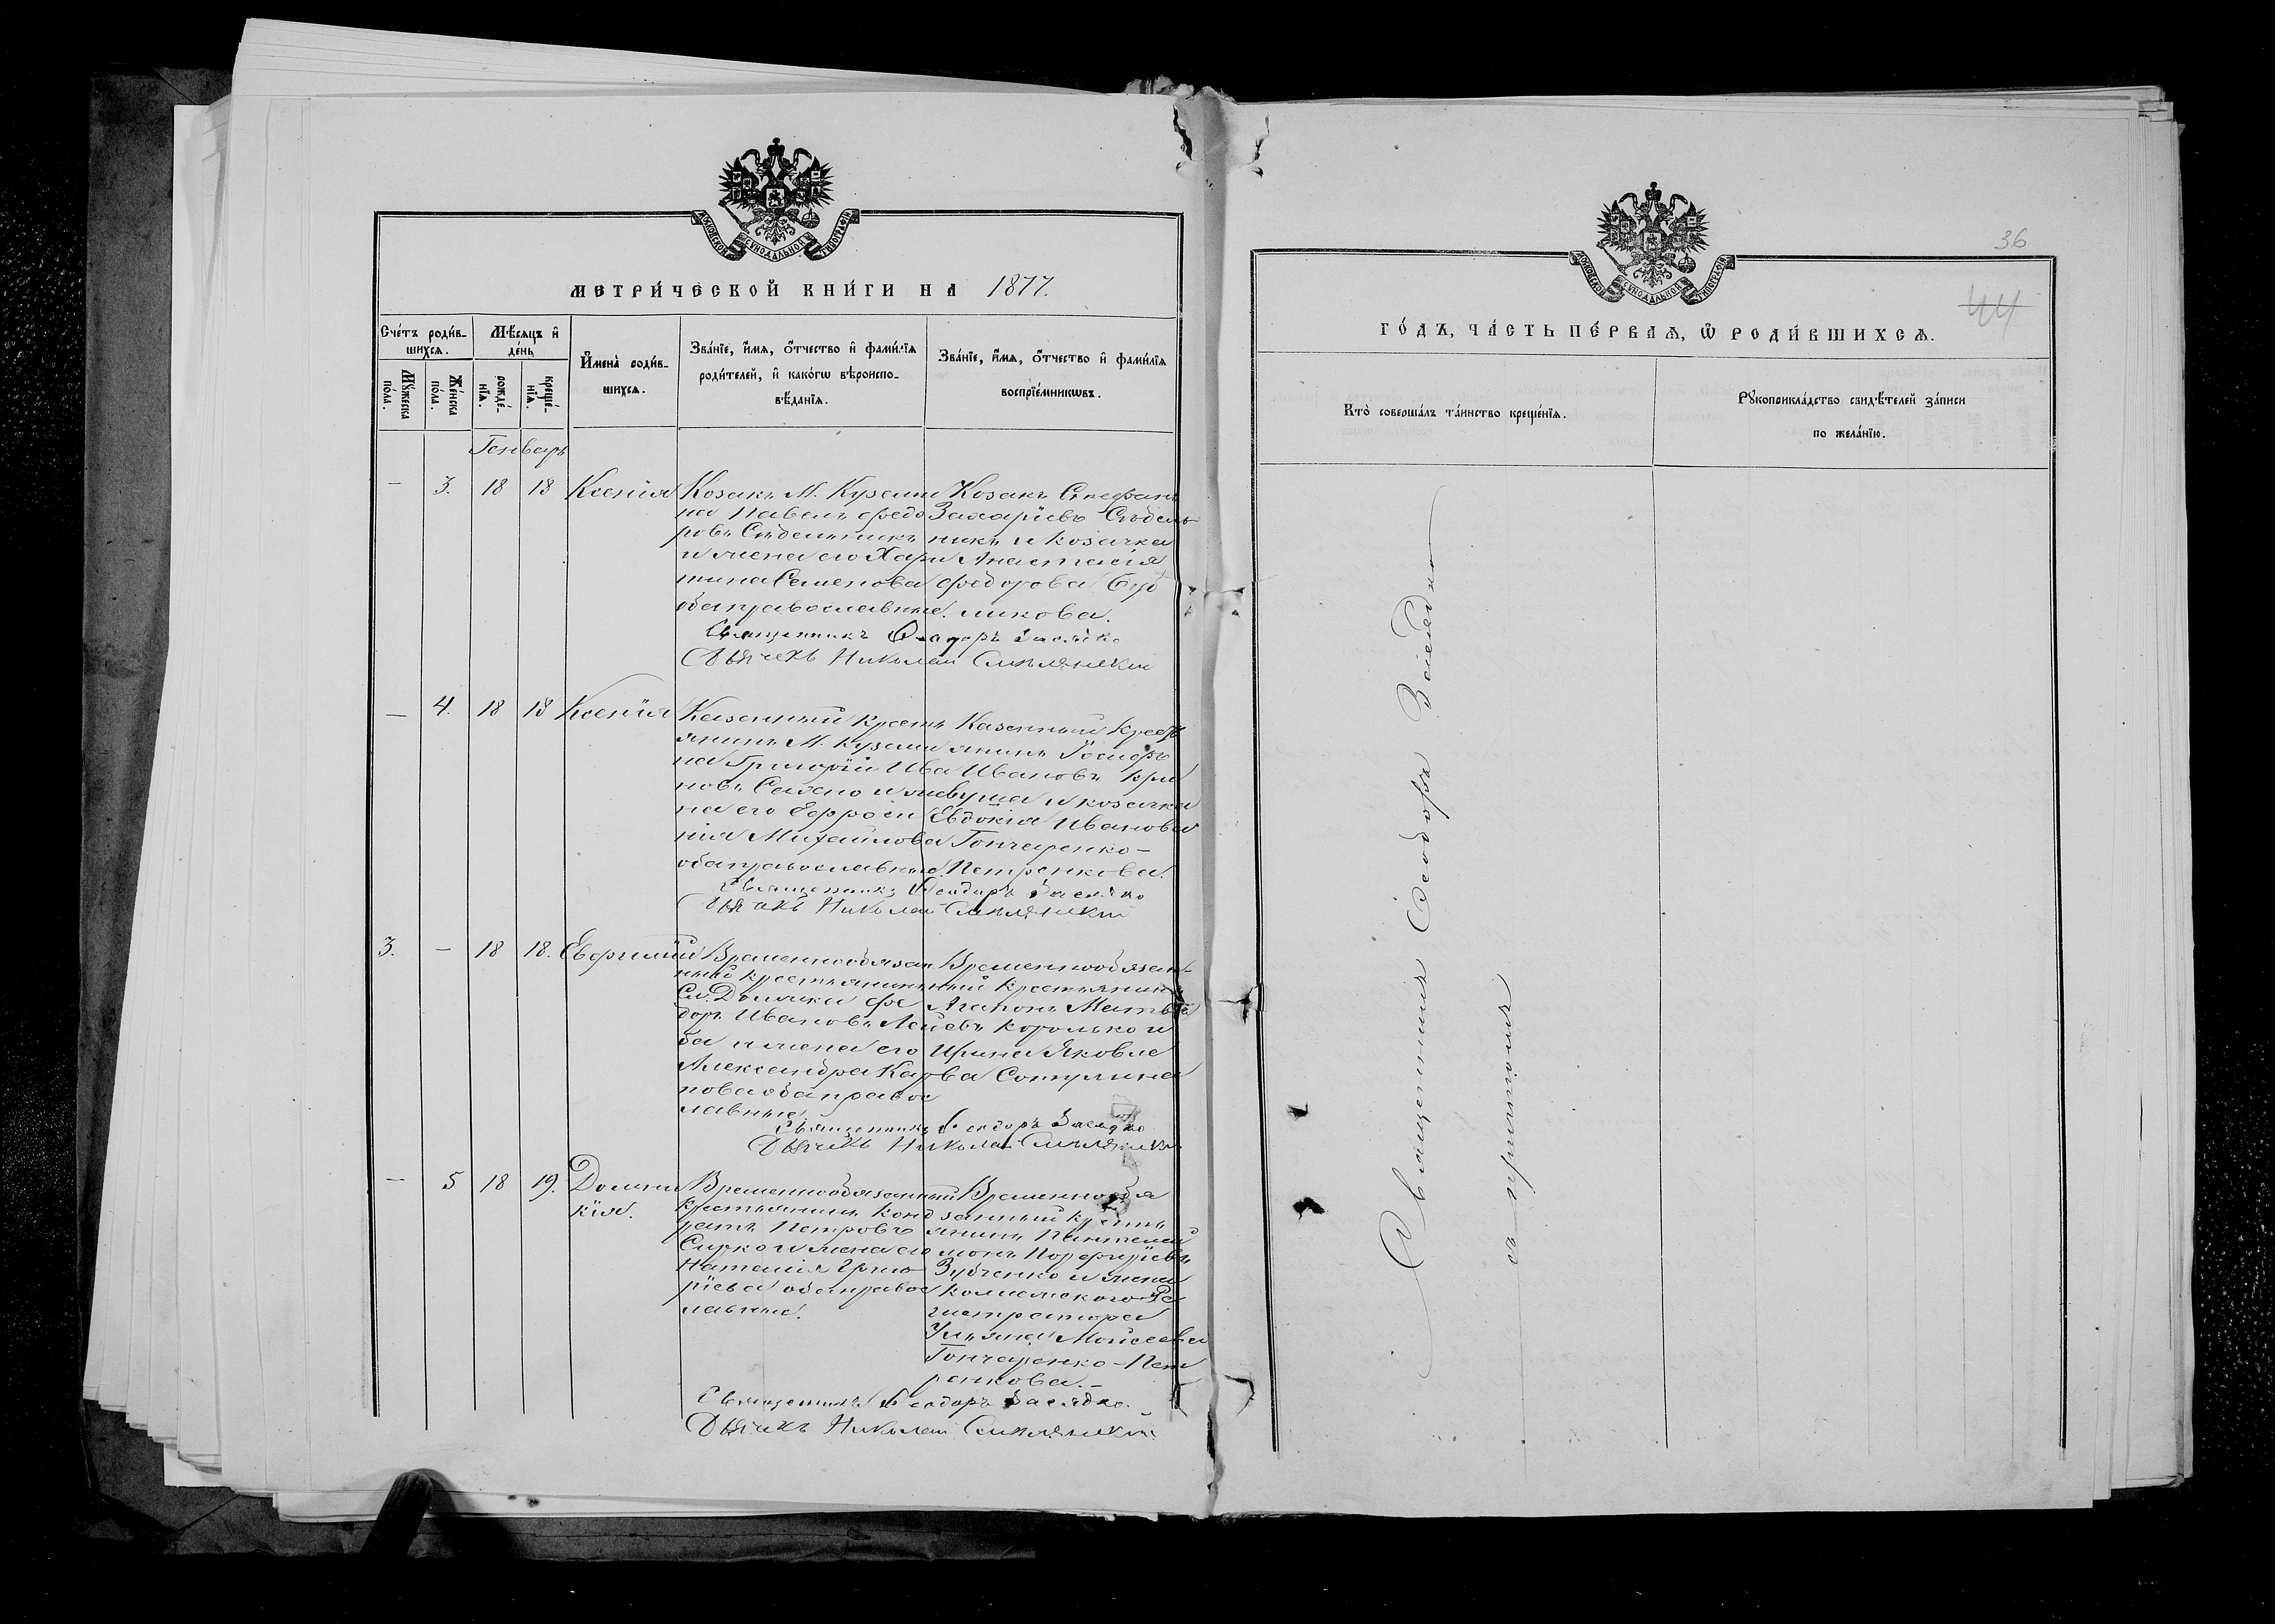 МОСКОВСКОЙ СѴНОДАЛЬНОЙ ТИПОГРАФІИ
МЕТРИ́ЧЕСКОЙ КНИ́ГИ НА 1877.
Счéтъ роди́в-
шихся.
Мѣ́сяцъ и҆
де́нь
Мꙋ́жеска
по́ла.
Же́нска
по́ла.
рожде́-
нїѧ.
креще́-
нїѧ.
И҆мена̀ роди́в-
шихся.
Зва́нїе, и҆́мѧ, ѻ҆́тчество и҆ фами́лїѧ
роди́телей, и҆ како́гѡ вѣроиспо-
вѣ́данїѧ.
Зва́нїе, и҆́мѧ, ѻ҆́тчество и҆ фами́лїѧ
воспрїе́мникѡвъ.
Генварь
— 3. 18 18 Ксенія
Козакъ М. Куземи
на Павелъ Федо
ровъ Сѣдельникъ
и жена его Хари
тина Семенова
оба православные.
Козакъ Стефанъ
Захаріевъ Сѣдель-
никъ и козачка
Анастасія
Федорова
ликова.
Священникъ Ѳеодоръ Засядко
Дьячекъ Николай
— 4. 18 18 Ксенія
Казенный крестъ
янинъ М. Куземи
на Григорій Ива
новъ и же
на его Еффроси
нія Михайлова
оба православные.
Казенный крестъ
янинъ
Ивановъ
и козачка
Евдокія Иванова
Гончаренко-
Петренкова.
Священникъ Ѳеодоръ Засядко
Дьячекъ Николай
3. — 18 18. Евфимій
Временнообязан
ный крестьянинъ
Сл. Должка Фе
доръ Ивановъ Ле
ба и жена его
Александра Кар
пова оба правос
лавные.
Временнообязан-
ный крестьянинъ
Агапонъ Матвѣ
евъ Королько и
Ирина Яковле
ва
Священникъ Ѳеодоръ Засядко
Дьячекъ Николай
— 5 18 19. Домни
кія.
Временнообязанный
крестьянинъ Конд
ратъ Петровъ
Сирко и жена его
Наталія Григо
ріева оба правос
лавные.
Временнообя
занный кресть
янинъ Пантелей
монъ Порфиріевъ
Зубченко и жена
Коллежского Ре
гистратора
Ульяна Моисеева
Гончаренко-Пет
ренкова.-
Священникъ Ѳеодоръ Засядко.
Дьячекъ Николай
36
44
МОСКОВСКОЙ СѴНОДАЛЬНОЙ ТИПОГРАФІИ
ГО́ДЪ, ЧА́СТЬ ПЕ́РВАѦ, Ѽ РОДИ́ВШИХСѦ.
Кто̀ соверша́лъ та́инство креще́нїѧ.
Рꙋкоприкла́дство свидѣ́телей за́писи
по жела́нїю.
Священникъ Ѳеодоръ Засядко
съ причтомъ